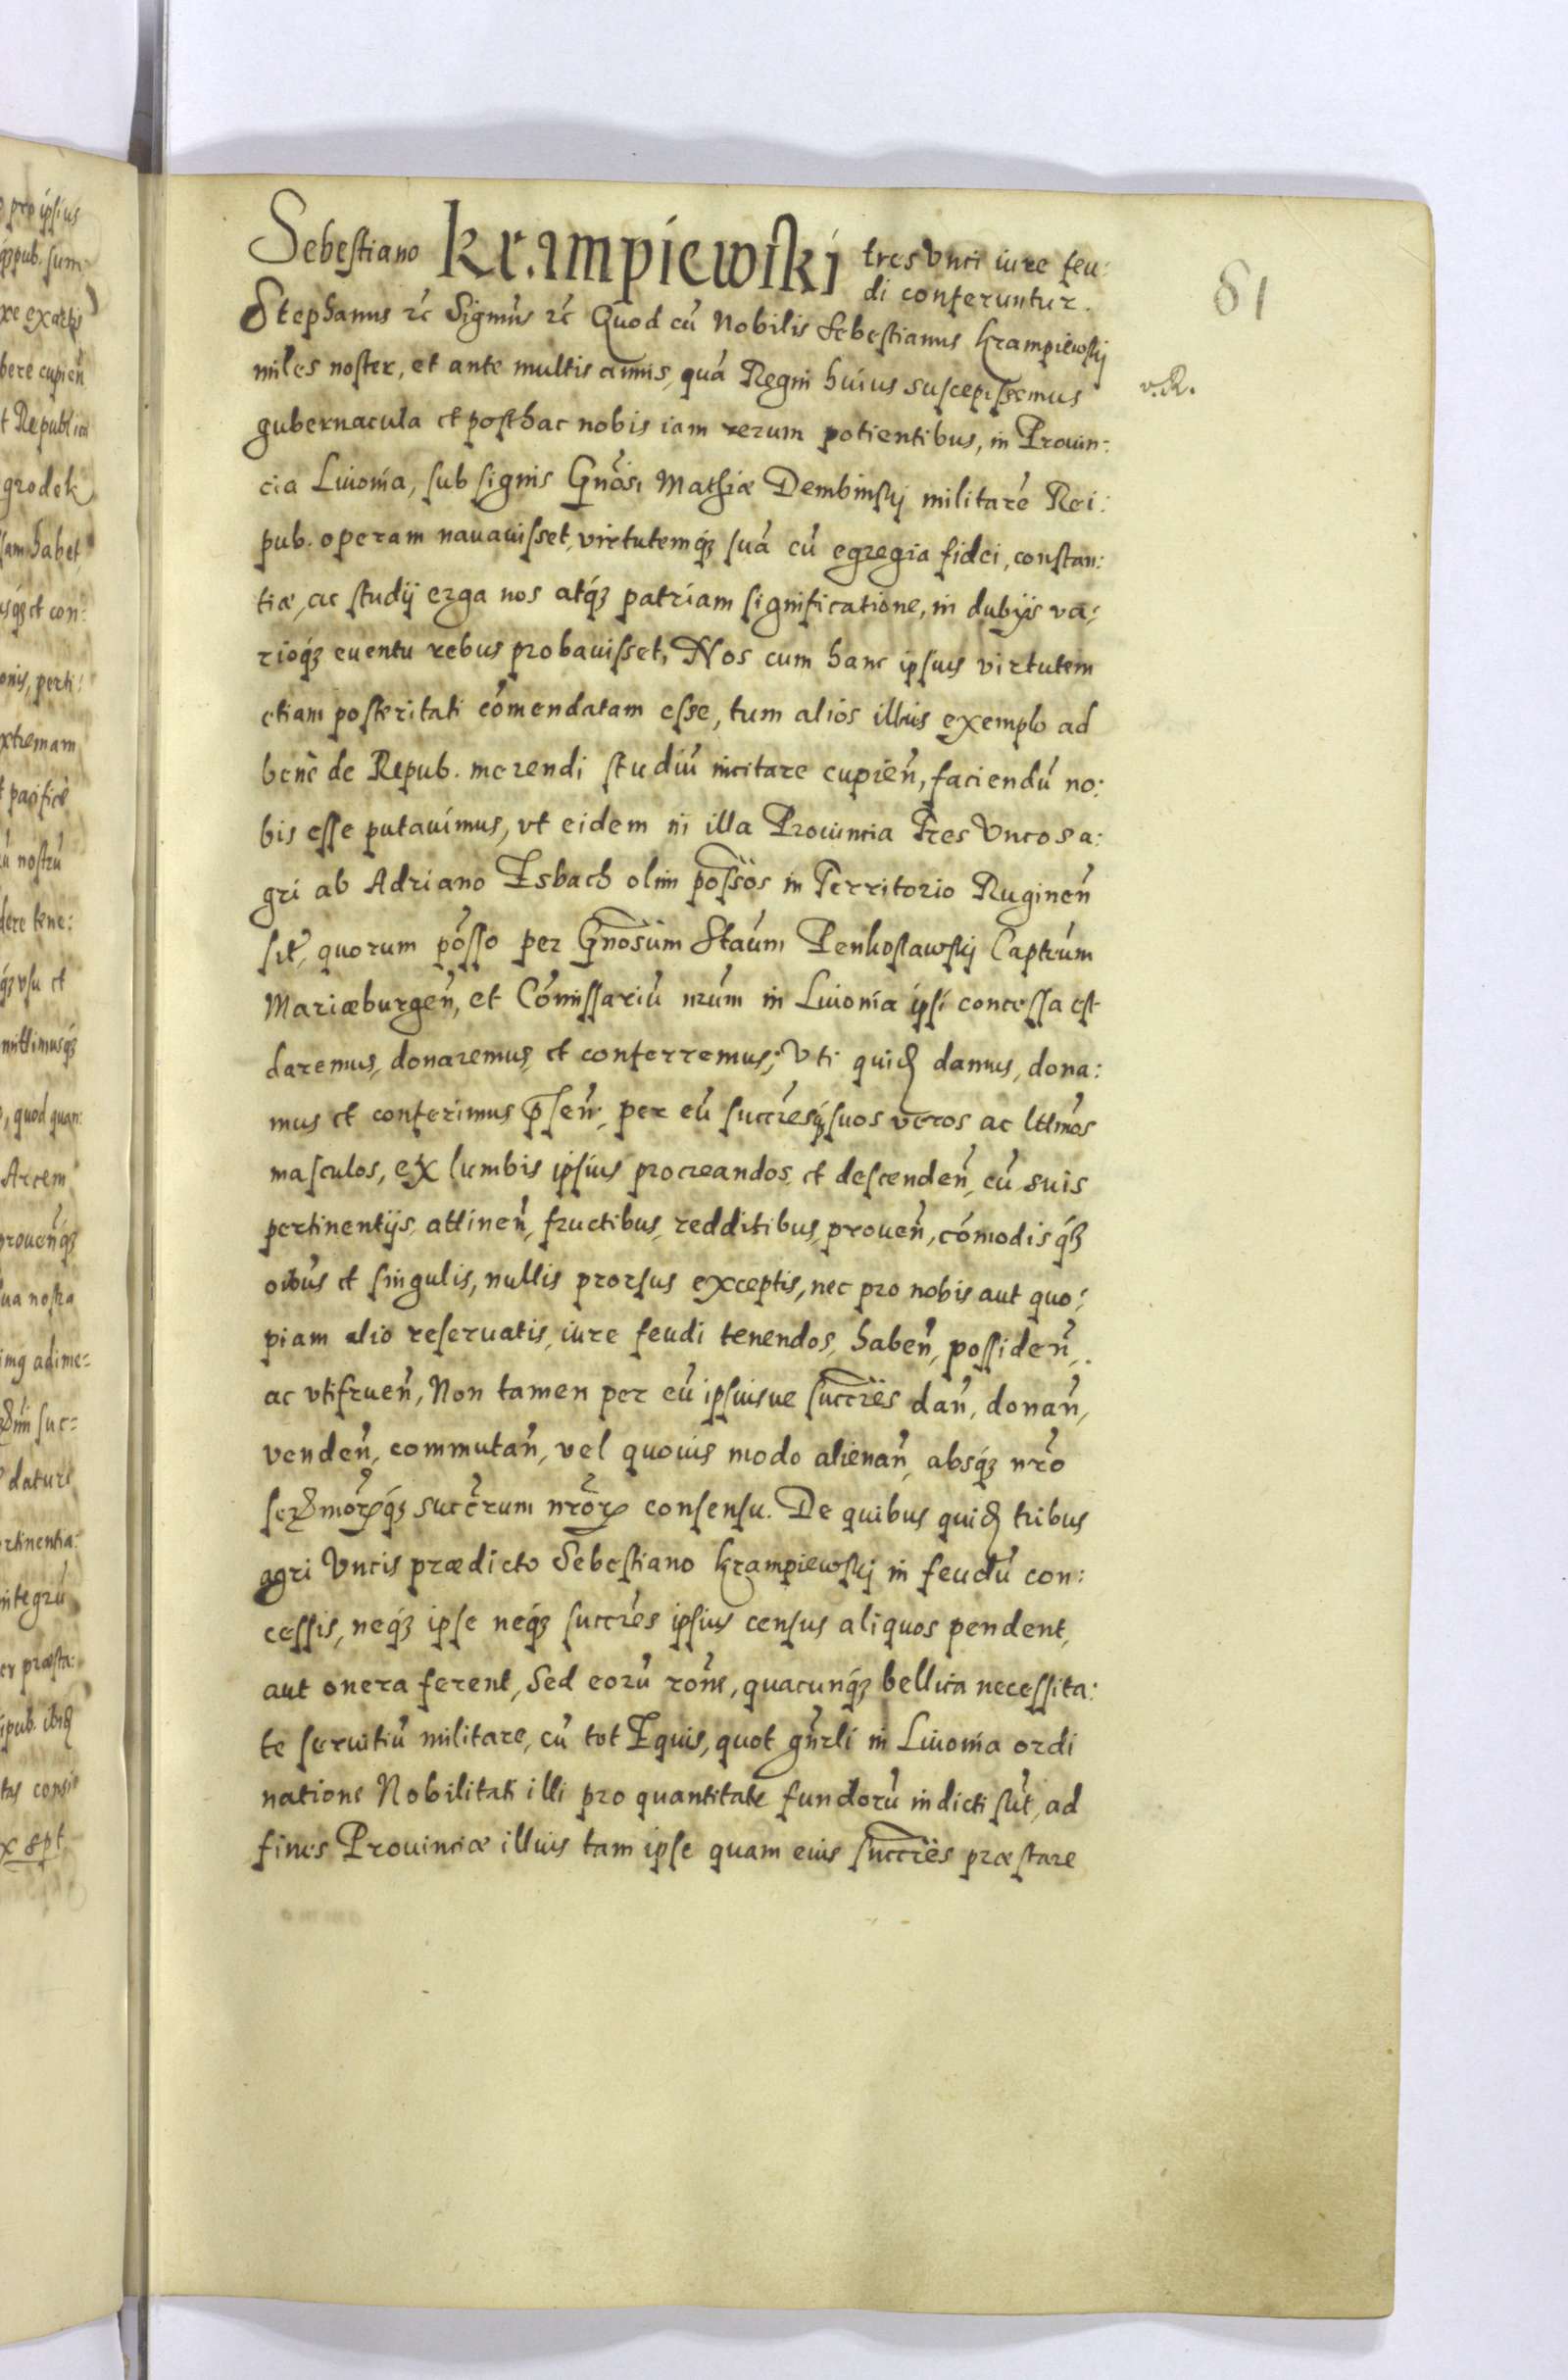 81
Sebestiano Krampiewski tres Vnci iure feu:
di conferuntur.
Stephanus rc̃ Signus̃ rc̃ Quod cũ Nobilis Sebestianus Krampiewskj
v.R.
miles noster, et ante multis annis, quã Regni huius suscepissemus
gubernacula et posthac nobis iam rerum potientibus, in Prouin:
cia Liuonia, sub signis Gnõsi Mathiæ Dembinskj militarẽ Rei:
pub. operam nauauisset, virtutemq́ꝫ suã cũ egregia fidei, constan:
tiæ, ac studij erga nos atq́ꝫ patriam significatione, in dubijs va:
rioq́ꝫ euentu rebus probauisset, Nos cum hanc ipsius virtutem
etiam posteritati cõmendatam esse, tum alios illius exemplo ad
benè de Repub. merendi studiũ incitare cupien̄, faciendũ no:
bis esse putauimus, vt eidem in illa Prouincia Tres Vncos a:
gri ab Adriano Esbach olim põssos in Territorio Ruginen̄
sit̃, quorum põsso per Gnõsum Staũm Penkoslawskj Capt̃rum
Mariæburgen̄, et Cõmissariũ nr̃um in Liuonia ipsi concessa est
daremus, donaremus, et conferremus; Vti quiđ damus, dona:
mus et conferimus p̃sen̄, per eũ succr̃esq́ꝫ suos veros ac lttm̃os
masculos, ex lumbis ipsius procreandos, et descenden̄, cũ suis
pertinentijs, attinen̄, fructibus, redditibus, prouen̄, cõmodisq́ꝫ
oĩbus et singulis, nullis prorsus exceptis, nec pro nobis aut quo:
piam alio reseruatis, iure feudi tenendos, haben̄, possiden̄,
ac vtifruen̄, Non tamen per eũ ipsiusue succr̃es dan̄, donan̄,
venden̄, commutan̄, vel quouis modo alienan̄, absq́ꝫ nr̃o
ser̃morꝝq́ꝫ succr̃rum nr̃orꝝ consensu. De quibus quiđ tribus
agri Vncis prædicto Sebestiano Krampiewskj in feudũ con:
cessis, neq́ꝫ ipse neq́ꝫ succr̃es ipsius census aliquos pendent,
aut onera ferent, Sed eorũ rõne, quacunq́ꝫ bellica necessita:
te seruitiũ militare, cũ tot Equis, quot gñrli in Liuonia ordi
natione Nobilitati illi pro quantitate fundorũ indicti sũt, ad
fines Prouinciæ illius tam ipse quam eius succr̃es præstare